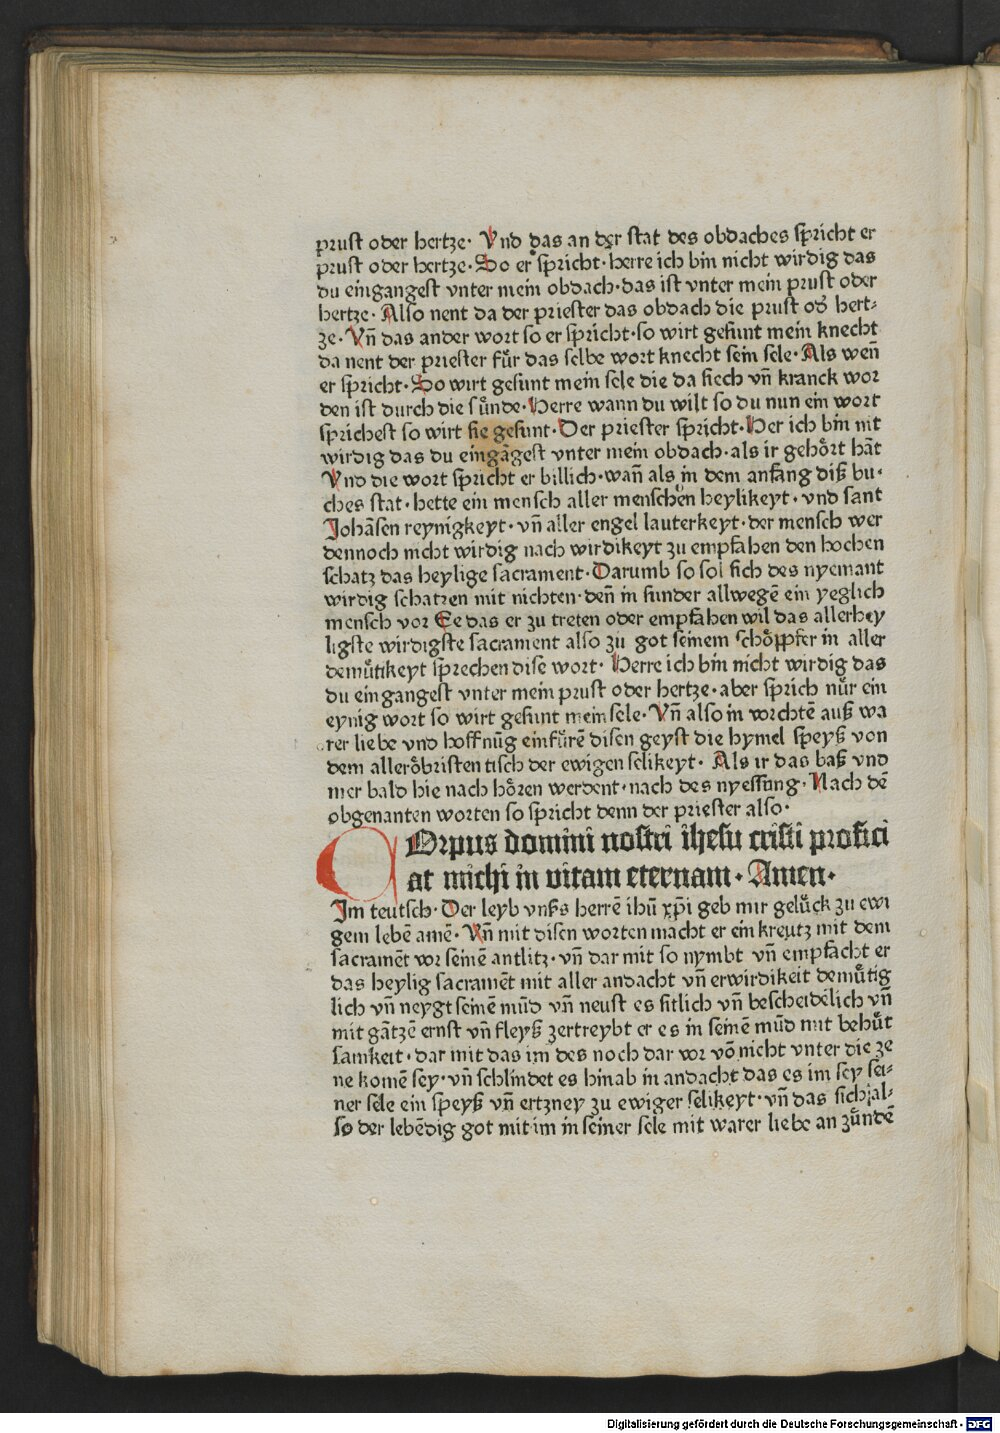 prust oder hertze· Vnd das an der stat des obdaches spricht er
prust oder hertze·So er spricht·herre ich bin nicht wirdig das
du eingangest vnter mein obdach·das ist vnter mein prust oder
hertze·Also nent da der priester das obdach die prust od̾ hert⸗
ze·Vn̄ das ander wort so er spricht·so wirt gesunt mein knecht
da nent der priester fuͤr das selbe wort knecht sein sele·Als wen̄
er spricht·So wirt gesunt mein sele die da siech vn̄ kranck wor
den ist durch die suͤnde·Herre wann du wilt so du nun ein wort
sprichest so wirt sie gesunt·Der priester spricht·Her ich bin nit
wirdig das du eingāgest vnter mein obdach·als ir gehoͤrt hāt
Vnd die wort spricht er billich·wan̄ als in dem anfang diß bu⸗
ches stat·hette ein mensch aller menschen heylikeyt·vnd sant
Johāsen reynigkeyt·vn̄ aller engel lauterkeyt·der mensch wer
dennoch nicht wirdig nach wirdikeyt zu empfahen den hochen
schatz das heylige sacrament·Darumb so sol sich des nyemant
wirdig schatzen mit nichten·den̄ in sunder allwegē ein yeglich
mensch vor Ee das er zu treten oder empfahen wil das allerhey
ligste wirdigste sacrament also zu got seinem schoͤppfer in aller
demuͤtikeyt sprechen dise wort· Herre ich bin nicht wirdig das
du eingangest vnter mein prust oder hertze·aber sprich nuͤr ein
eynig wort so wirt gesunt mein sele·Vn̄ also in vorchtē auß wa
rer liebe vnd hoffnūg einfuͤrē disen geyst die hymel speyß von
dem alleroͤbristen tisch der ewigen selikeyt· Als ir das baß vnd
mer bald hie nach hoͤren werdent·nach des nyessung·Nach dē
obgenanten worten so spricht denn der priester also·
COrpus domini nostri ihesu cristi profici
at michi in vitam eternam·Amen·
Im teutsch·Der leyb vnßs herrē ihū xp̄i geb mir geluͤck zu ewi
gem lebē amē·Vn̄ mit disen worten macht er ein kreutz mit dem
sacramēt vor seinē antlitz·vn̄ dar mit so nymbt vn̄ empfacht er
das heylig sacramēt mit aller andacht vn̄ erwirdikeit demuͤtig
lich vn̄ neygt seinē mūd vn̄ neust es sitlich vn̄ bescheidēlich vn̄
mit gātzē ernst vn̄ fleyß zertreybt er es in seinē mūd mit behuͤt
samkeit·dar mit das im des noch dar vor vō nicht vnter die ze
ne komē sey·vn̄ schlindet es hinab in andacht das es im sey sei⸗
ner sele ein speyß vn̄ ertzney zu ewiger selikeyt·vn̄ das sich al⸗
so der lebēdig got mit im in seiner sele mit warer liebe an zuͤndē
Digitalisierung gefördert durch die Deutsche Forschungsgemeinschaft - DFG